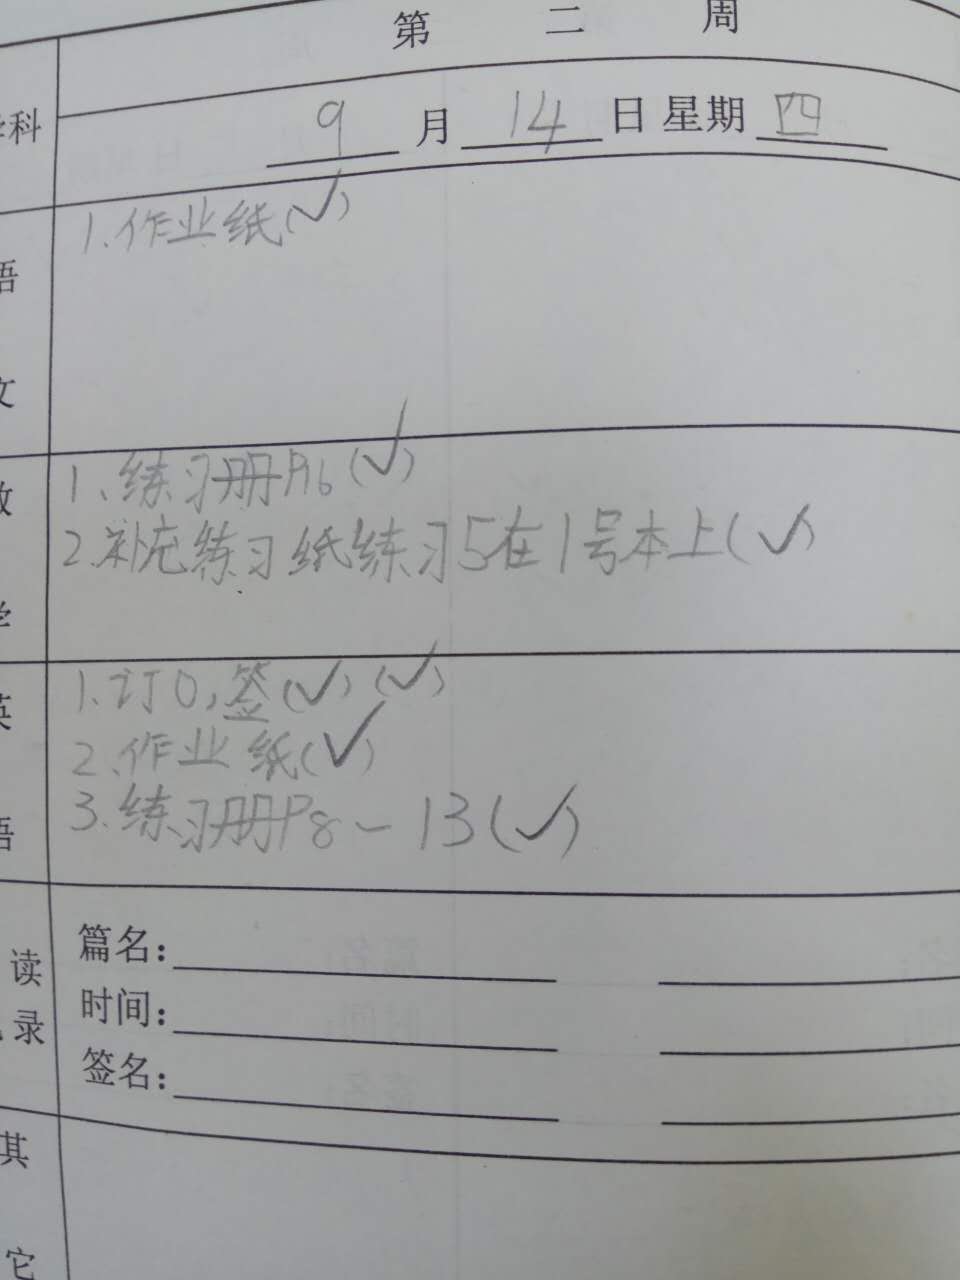 第 二 周
科
9 月 14 日 星期 四
语
文
1.作业纸(✓)
数
学
1、练习册P16(✓)
2.补充练习纸练习5在1号本上(✓)
英
语
1.订0,签(✓)(✓)
2.作业纸(✓)
3.练习册P8~13(✓)
读
录
篇名:
时间:
签名:
其
它